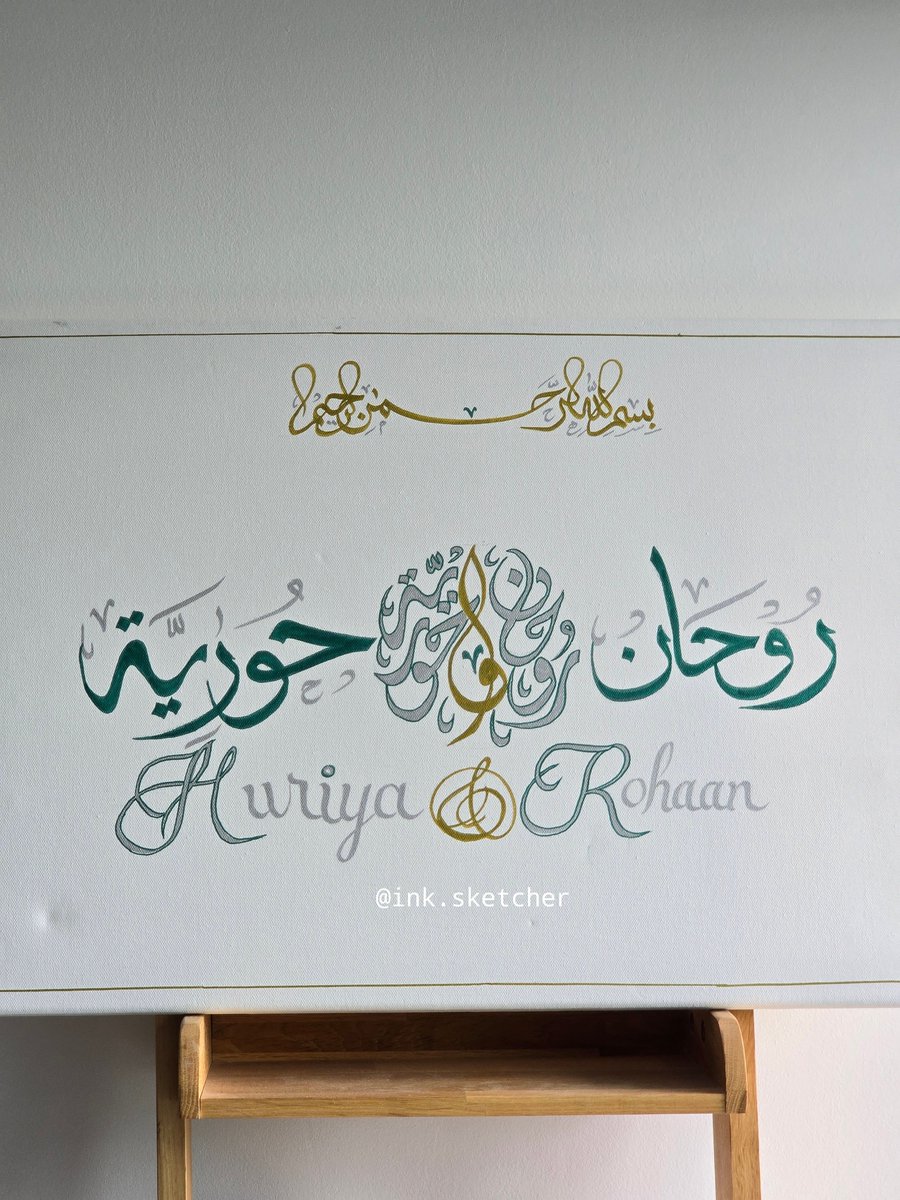 بِسْمِ اللَّهِ الرَّحْمٰنِ الرَّحِيمِ
رُوْحَان و حُورِيَّة
روحان و حوريّة
Huriya & Rohaan
@ink.sketcher